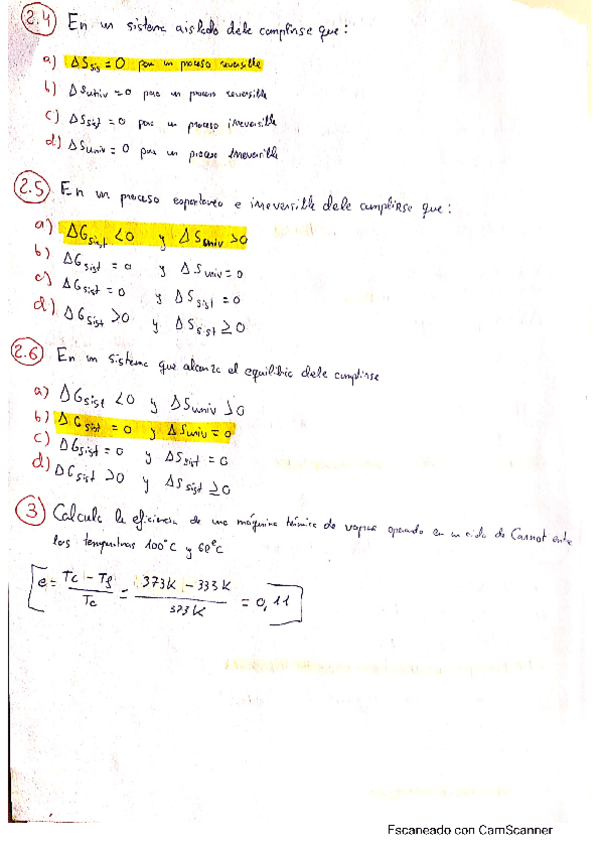 2.4 En un sistema aislado debe cumplirse que:
a) ΔSsis = 0 para un proceso reversible
b) ΔSuniv = 0 para un proceso reversible
c) ΔSsist = 0 para un proceso irreversible
d) ΔSuniv = 0 para un proceso irreversible
2.5 En un proceso espontaneo e irreversible debe cumplirse que:
a) ΔGsist <0 y ΔSuniv >0
b) ΔGsist = 0 y ΔSuniv = 0
c) ΔGsist = 0 y ΔSsist = 0
d) ΔGsist >0 y ΔSsist ≥0
2.6 En un sistema que alcanza el equilibrio debe cumplirse
a) ΔGsist <0 y ΔSuniv >0
b) ΔGsist = 0 y ΔSuniv = 0
c) ΔGsist = 0 y ΔSsist = 0
d) ΔGsist >0 y ΔSsist ≥0
3 Calcule la eficiencia de una máquina térmica de vapor operando en un ciclo de Carnot entre
las temperaturas 100°C y 60°C
e = Tc - Tf / Tc = 373K - 333K / 373K = 0,11
Escaneado con CamScanner